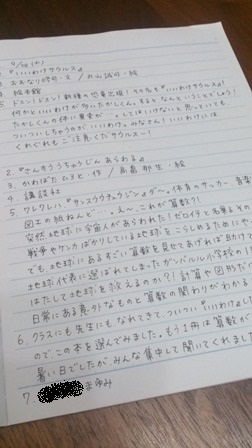 4/18(木)
『いいわけサウルス』
おおなり修司・文 / 丸山誠司・絵
絵本館
5 ドシン!ドシン!新種の恐竜出現!その名も『いいわけサウルス』。
何かといいわけが多いたかしくん。するとなんということでしょう!
たかしくんの体に異変が…。してはいけないと思っていても、
ついついしちゃうのがいいわけ。みなさん!いいわけには
くれぐれもご注意くださサウルスー!
2.『さんすううちゅうじんあらわる』
3 かわばた ひろと・作 / 高畠那生・絵
4 講談社
5 ワレワレハ『サンスウウチュウジンダ』~。体育のサッカー、音楽
図工の紙ねんど…、え~、これが算数!?
突然地球に宇宙人があらわれた!ゼロイチと名乗るその
戦争やケンカばかりしている地球をこらしめるために
でも地球にあるすごい算数を見せてあげれば助けて
地球代表に選ばれてしまったガンバルル小学校の
はたして地球を救えるのか?!計算や図形だけ
日常にある意外なものと算数の関わりがわかる
6 クラスにも先生にもなれてきて、ついつい『いいわけ』
ので、この本を選んでみました。もう1冊は算数が
暑い日でしたが、みんな集中して聞いてくれました
7 まゆみ